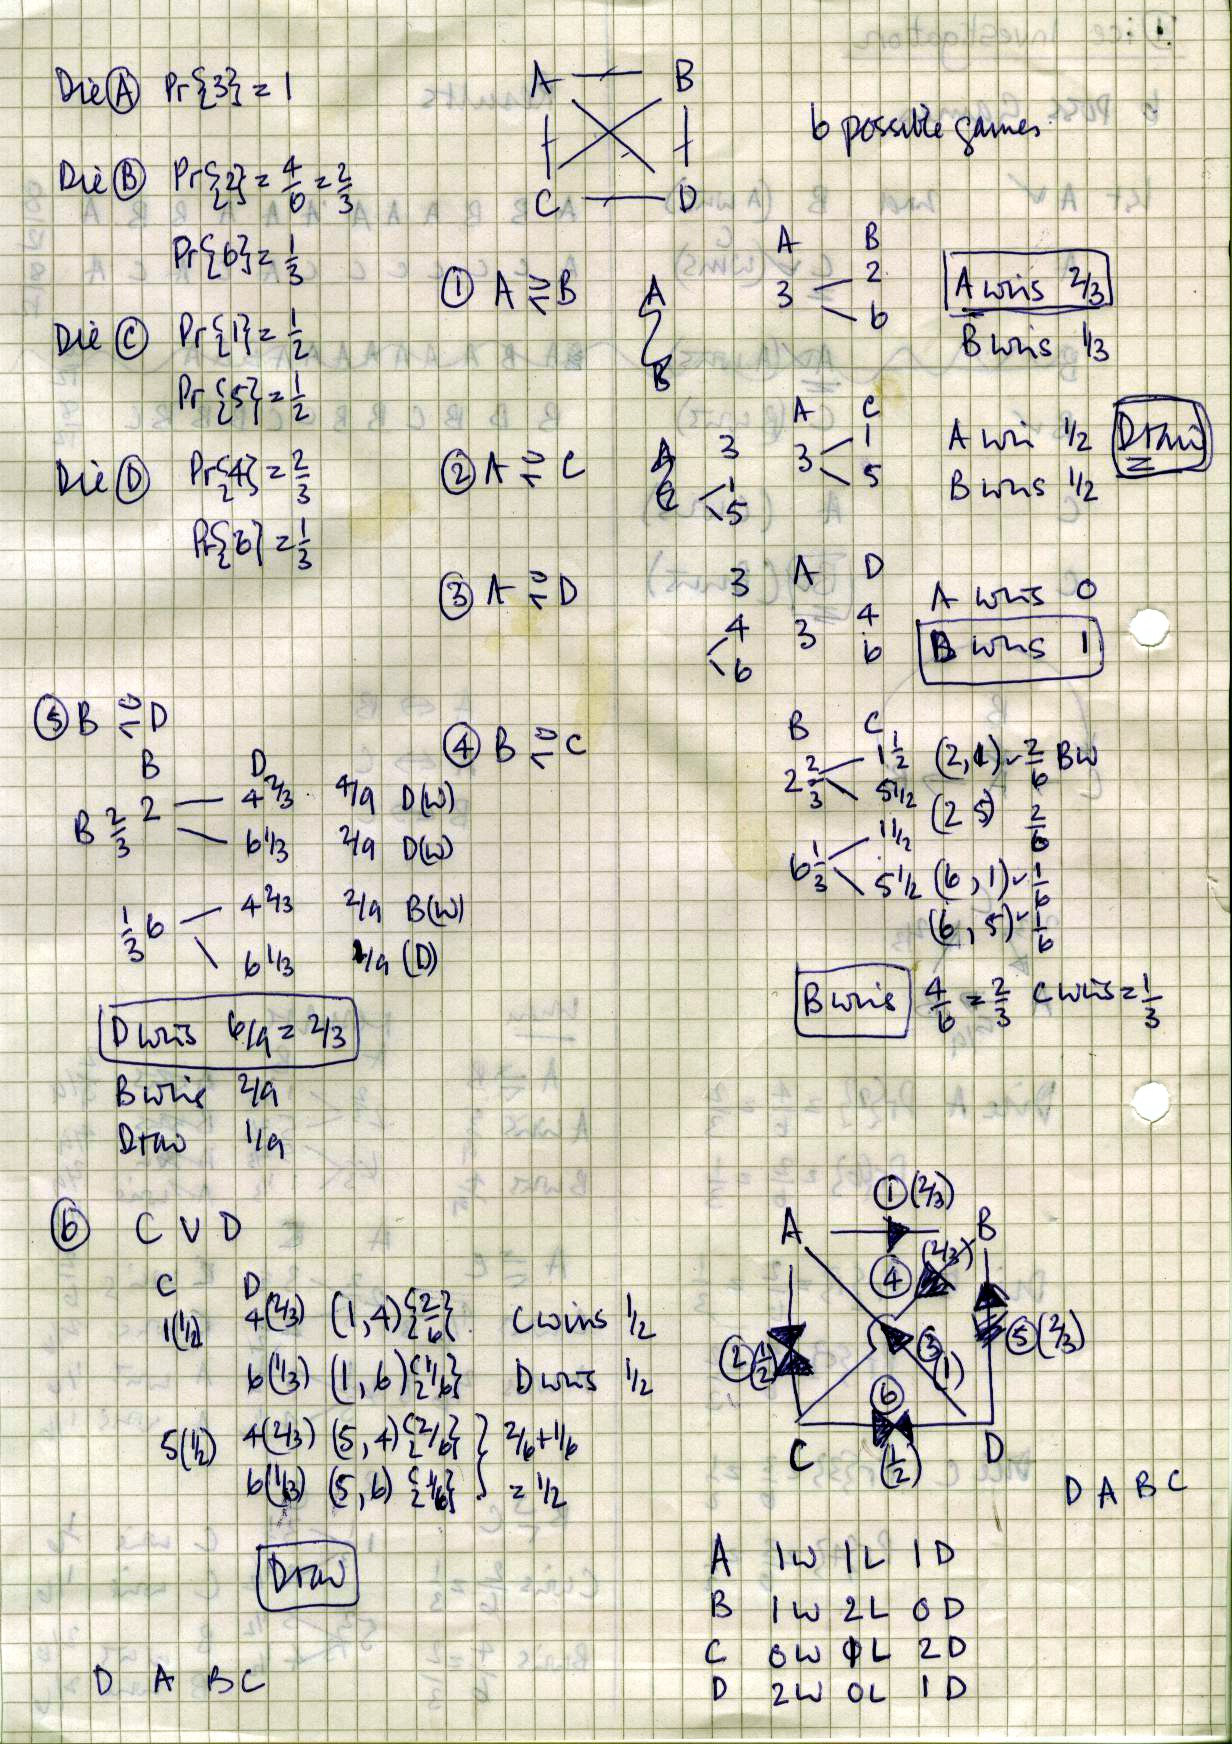 Die Ⓐ Pr{3} = 1
Die Ⓑ Pr{2} = 4/6 = 2/3
Pr{6} = 1/3
Die Ⓒ Pr{1} = 1/2
Pr{5} = 1/2
Die Ⓓ Pr{4} = 2/3
Pr{6} = 1/3
A B
C D
6 possible games.
① A ≷ B
A
B
A B
3 2
6
A wins 2/3
B wins 1/3
② A ≷ C
A 3
C 1
5
A C
3 1
5
A win 1/2
B wins 1/2
Draw
③ A ≷ D
3
4
6
A D
3 4
6
A wins 0
B wins 1
④ B ≷ C
B C
2 2/3 1 1/2 (2,1) ✓ 2/6 BW
5 1/2 (2 5) 2/6
6 1/3 1 1/2
5 1/2 (6, 1) ✓ 1/6
(6, 5) ✓ 1/6
B wins 4/6 = 2/3 C wins = 1/3
⑤ B ≷ D
B D
B 2/3 2 4 2/3 4/9 D(W)
6 1/3 2/9 D(W)
1/3 6 4 2/3 2/9 B(W)
6 1/3 1/9 (D)
D wins 6/9 = 2/3
B wins 2/9
Draw 1/9
⑥ C V D
C D
1(1/2) 4(2/3) (1,4){2/6} C wins 1/2
6(1/3) (1,6){1/6} D wins 1/2
5(1/2) 4(2/3) (5,4){2/6} } 2/6+1/6
6(1/3) (5,6){1/6} = 1/2
Draw
D A B C
① (2/3)
A B
④ (2/3)
② 1/2 ③ (1) ⑤ (2/3)
⑥
C (1/2) D
D A B C
A 1W 1L 1D
B 1W 2L 0D
C 0W 1L 2D
D 2W 0L 1D